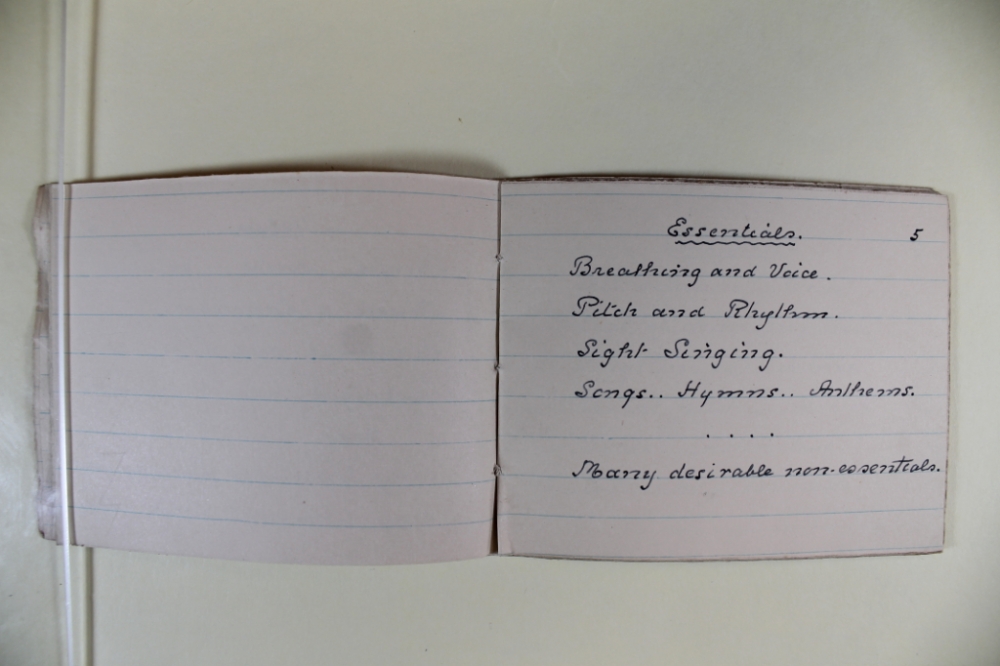 Essentials. 5
Breathing and Voice.
Pitch and Rhythm.
Sight Singing.
Songs.. Hymns.. Anthems.
. . . .
Many desirable non-essentials.